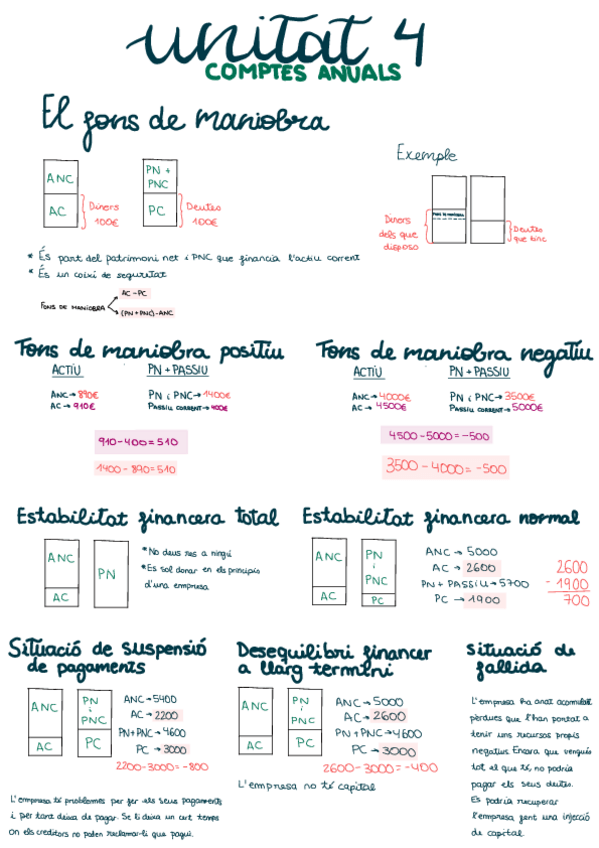 unitat 4
COMPTES ANUALS
El fons de maniobra
ANC
AC
Diners
100€
PN +
PNC
PC
Deutes
100€
Exemple
Fons de maniobra
Diners
dels que
disposo
Deutes
que tinc
* És part del patrimoni net i PNC que financia l'actiu corrent
* És un coixí de seguretat
FONS DE MANIOBRA
AC - PC
(PN + PNC) - ANC
Fons de maniobra positiu
ACTIU
PN + PASSIU
ANC → 890€
PN i PNC → 1400€
AC → 910€
PASSIU CORRENT → 400€
910 - 400 = 510
1400 - 890 = 510
Fons de maniobra negatiu
ACTIU
PN + PASSIU
ANC → 4000€
PN i PNC → 3500€
AC → 4500€
PASSIU CORRENT → 5000€
4500 - 5000 = -500
3500 - 4000 = -500
Estabilitat financera total
ANC
AC
PN
* No deus res a ningú
* Es sol donar en els principis
d'una empresa
Estabilitat financera normal
ANC
AC
PN
i
PNC
PC
ANC → 5000
AC → 2600
PN + PASSIU → 5700
PC → 1900
2600
- 1900
700
Situació de suspensió
de pagaments
ANC
AC
PN
i
PNC
PC
ANC → 5400
AC → 2200
PN + PNC → 4600
PC → 3000
2200 - 3000 = -800
L'empresa té problemes per fer els seus pagaments
i per tant deixa de pagar. Se li deixa un cert temps
on els creditors no poden reclamar-li que pagui.
Desequilibri financer
a llarg termini
ANC
AC
PN
i
PNC
PC
ANC → 5000
AC → 2600
PN + PNC → 4600
PC → 3000
2600 - 3000 = -400
L'empresa no té capital
Situació de
fallida
L'empresa ha anat acomulat
pèrdues que l'han portat a
tenir uns recursos propis
negatius. Encara que vengués
tot el que té, no podria
pagar els seus deutes.
Es podria recuperar
l'empresa fent una injecció
de capital.